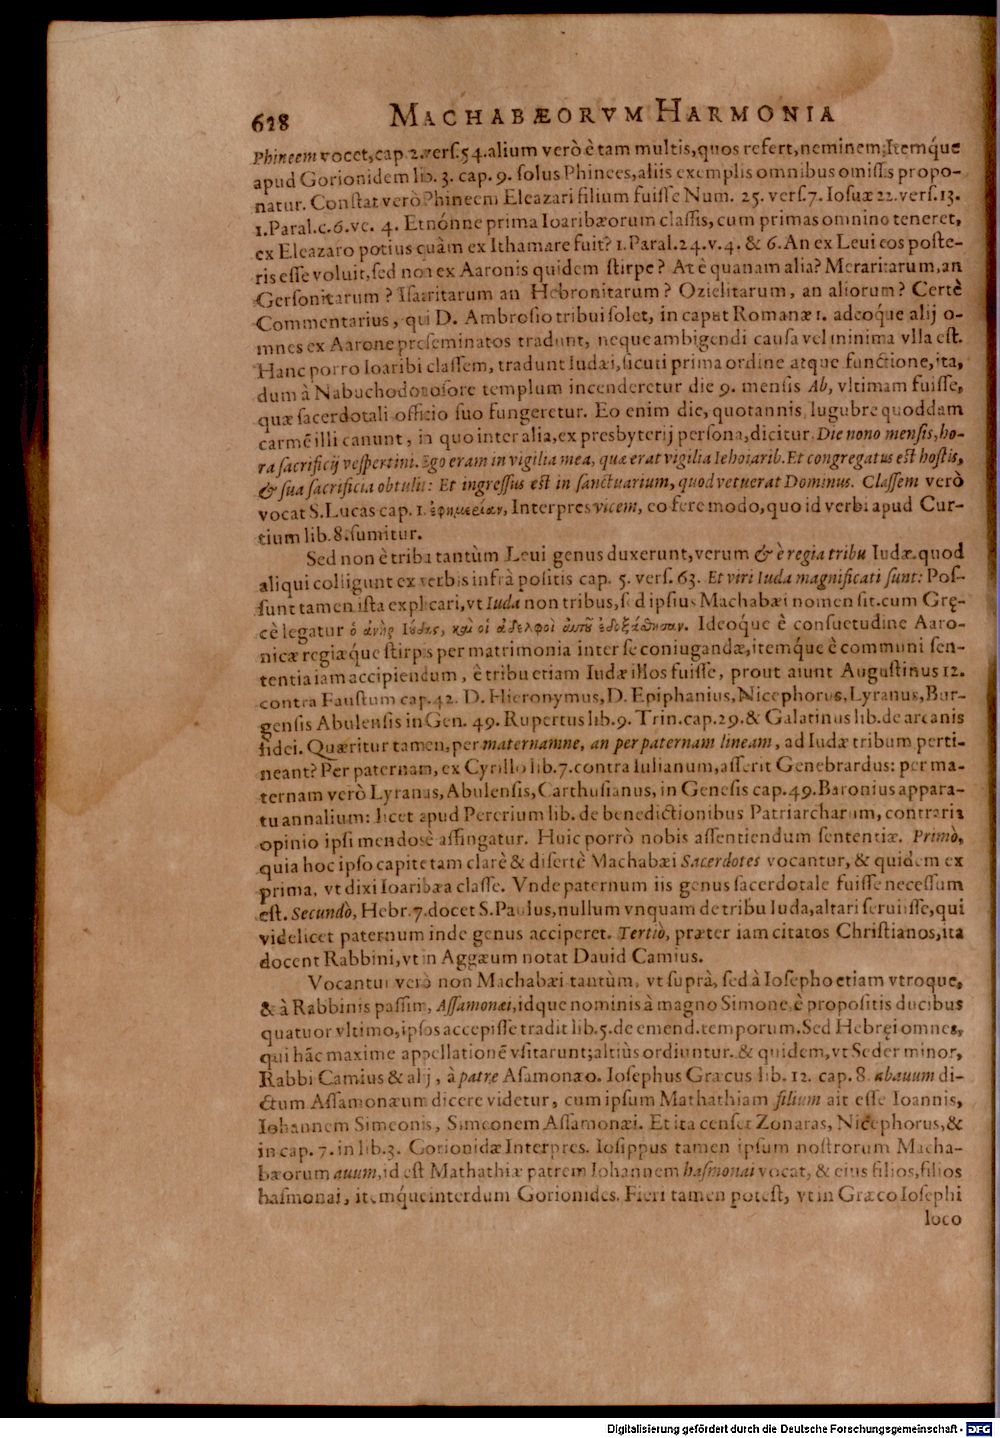 628 MACHABÆORVM HARMONIA
Phineem vocet, cap. 2. vers. 54. alium verò è tam multis, quos refert, neminem; Itemq́ue
apud Gorionidem lib. 3. cap. 9. solus Phinees, aliis exemplis omnibus omissis propo-
natur. Constat verò Phineem Eleazari filium fuisse Num. 25. vers. 7. Iosuæ 22. vers. 13.
1. Paral. c. 6. ve. 4. Et nónne prima Ioaribæorum classis, cum primas omnino teneret,
ex Eleazaro potius quàm ex Ithamare fuit? 1. Paral. 24. v. 4. & 6. An ex Leui eos poste-
ris esse voluit, sed non ex Aaronis quidem stirpe? At è quanam alia? Meraritarum, an
Gersonitarum? Isaritarum an Hebronitarum? Ozielitarum, an aliorum? Certè
Commentarius, qui D. Ambrosio tribui solet, in caput Romanæ 1. adeoq́ue alij o-
mnes ex Aarone proseminatos tradunt, neque ambigendi causa vel minima vlla est.
Hanc porro Ioaribi classem, tradunt Iudæi, sicuti prima ordine atque functione, ita,
dum à Nabuchodonosore templum incenderetur die 9. mensis Ab, vltimam fuisse,
quæ sacerdotali officio suo fungeretur. Eo enim die, quotannis lugubre quoddam
carmē illi canunt, in quo inter alia, ex presbyterij persona, dicitur. Die nono mensis, ho-
ra sacrificij vespertini. Ego eram in vigilia mea, quæ erat vigilia Iehoiarib. Et congregatus est hostis,
& sua sacrificia obtulit: Et ingressus est in sanctuarium, quod vetuerat Dominus. Classem verò
vocat S. Lucas cap. 1. ἐφημερίαν, Interpres vicem, eo fere modo, quo id verbi apud Cur-
tium lib. 8. sumitur.
Sed non è tribu tantùm Leui genus duxerunt, verum & è regia tribu Iudæ. quod
aliqui colligunt ex verbis infrà positis cap. 5. vers. 63. Et viri Iuda magnificati sunt: Pos-
sunt tamen ista explicari, vt Iuda non tribus, sed ipsius Machabæi nomen sit. cum Gręcè
cè legatur ὁ ἀνὴρ Ἰούδας, καὶ οἱ ἀδελφοὶ αὐτοῦ ἐδοξάσθησαν. Ideoq́ue è consuetudine Aaro-
nicæ regiæq́ue stirpis per matrimonia inter se coniugandæ, itemq́ue è communi sen-
tentia iam accipiendum, è tribu etiam Iudæ illos fuisse, prout aiunt Augustinus 12.
contra Faustum cap. 42. D. Hieronymus, D. Epiphanius, Nicephorus, Lyranus, Bur-
gensis Abulensis in Gen. 49. Rupertus lib. 9. Trin. cap. 29. & Galatinus lib. de arcanis
fidei. Quæritur tamen, per maternamne, an per paternam lineam, ad Iudæ tribum perti-
neant? Per paternam, ex Cyrillo lib. 7. contra Iulianum, asserit Genebrardus: per ma-
ternam verò Lyranus, Abulensis, Carthusianus, in Genesis cap. 49. Baronius appara-
tu annalium: licet apud Pererium lib. de benedictionibus Patriarcharum, contraria
opinio ipsi mendosè affingatur. Huic porrò nobis assentiendum sententiæ. Primò,
quia hoc ipso capite tam clarè & disertè Machabæi Sacerdotes vocantur, & quidem ex
prima, vt dixi Ioaribæa classe. Vnde paternum iis genus sacerdotale fuisse necessum
est. Secundò, Hebr. 7. docet S. Paulus, nullum vnquam de tribu Iuda, altari seruiisse, qui
videlicet paternum inde genus acciperet. Tertiò, præter iam citatos Christianos, ita
docent Rabbini, vt in Aggæum notat Dauid Camius.
Vocantur verò non Machabæi tantùm, vt suprà, sed à Iosepho etiam vtroque,
& à Rabbinis passim, Assamonæi, idque nominis à magno Simone, è propositis ducibus
quatuor vltimo, ipsos accepisse tradit lib. 5. de emend. temporum. Sed Hebręi omnes,
qui hāc maxime appellationē vsitarunt; altiùs ordiuntur. & quidem, vt Seder minor,
Rabbi Camius & alij, à patre Asamonæo. Iosephus Græcus lib. 12. cap. 8. abauum di-
ctum Assamonæum dicere videtur, cum ipsum Mathathiam filium ait esse Ioannis,
Iohannem Simeonis, Simeonem Assamonæi. Et ita censet Zonaras, Nicephorus, &
in cap. 7. in lib. 3. Gorionidæ Interpres. Iosippus tamen ipsum nostrorum Macha-
bæorum auum, id est Mathathiæ patrem Iohannem hasmonai vocat, & eius filios, filios
hasmonai, itemq́ue interdum Gorionides. Fieri tamen potest, vt in Græco Iosephi
loco
Digitalisierung gefördert durch die Deutsche Forschungsgemeinschaft - DFG